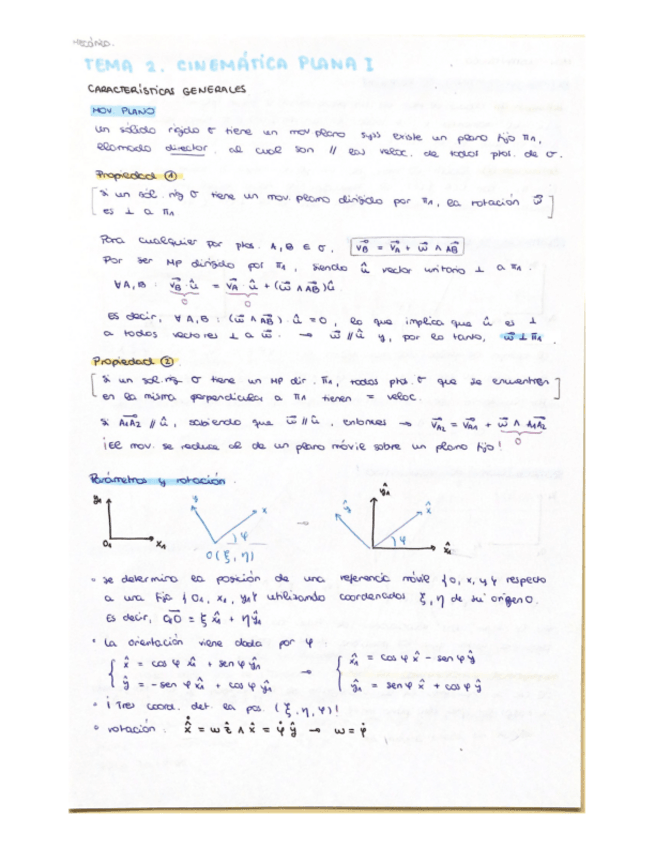 MECÁNICA.
TEMA 2. CINEMÁTICA PLANA I
CARACTERÍSTICAS GENERALES
MOV PLANO
un sólido rígido σ tiene un mov plano syss existe un plano fijo π₁,
llamado director, al cual son // las veloc. de todos ptos. de σ.
Propiedad ①
[ si un sól. rig σ tiene un mov. plano dirigido por π₁, la rotación ω⃗ ]
es ⊥ a π₁
Para cualquier par ptos. A, B ∈ σ, v⃗B = v⃗A + ω⃗ ∧ AB⃗
Por ser MP dirigido por π₁, siendo û vector unitario ⊥ a π₁.
∀A, B : v⃗B · û = v⃗A · û + (ω⃗ ∧ AB⃗) û
0 0
Es decir, ∀ A, B : (ω⃗ ∧ AB⃗) · û = 0, lo que implica que û es ⊥
a todos vectores ⊥ a ω⃗. → ω⃗ // û y, por lo tanto, ω⃗ ⊥ π₁.
Propiedad ②
[ Si un sol. rig. σ tiene un MP dir. π₁, todos ptos. σ que se encuentren ]
en la misma perpendicular a π₁ tienen = veloc.
Si A₁A₂⃗ // û, sabiendo que ω⃗ // û, entonces → v⃗A₂ = v⃗A₁ + ω⃗ ∧ A₁A₂⃗
0
¡El mov. se reduce al de un plano móvil sobre un plano fijo!
Parámetros y rotación.
y₁ y x ŷ ŷ₁ x̂
φ → φ
O₁ x₁ O(ξ, η) x̂₁
• se determina la posición de una referencia móvil {O, x, y} respecto
a una fija {O₁, x₁, y₁} utilizando coordenadas ξ, η de su origen O.
Es decir, O₁O⃗ = ξ x̂₁ + η ŷ₁
• La orientación viene dada por φ:
{ x̂ = cos φ x̂₁ + sen φ ŷ₁ → { x̂₁ = cos φ x̂ - sen φ ŷ
ŷ = - sen φ x̂₁ + cos φ ŷ₁ ŷ₁ = sen φ x̂ + cos φ ŷ
• ¡Tres coord. det. la pos. (ξ, η, φ)!
• rotación: x̂̇ = ω ẑ ∧ x̂ = φ̇ ŷ → ω = φ̇